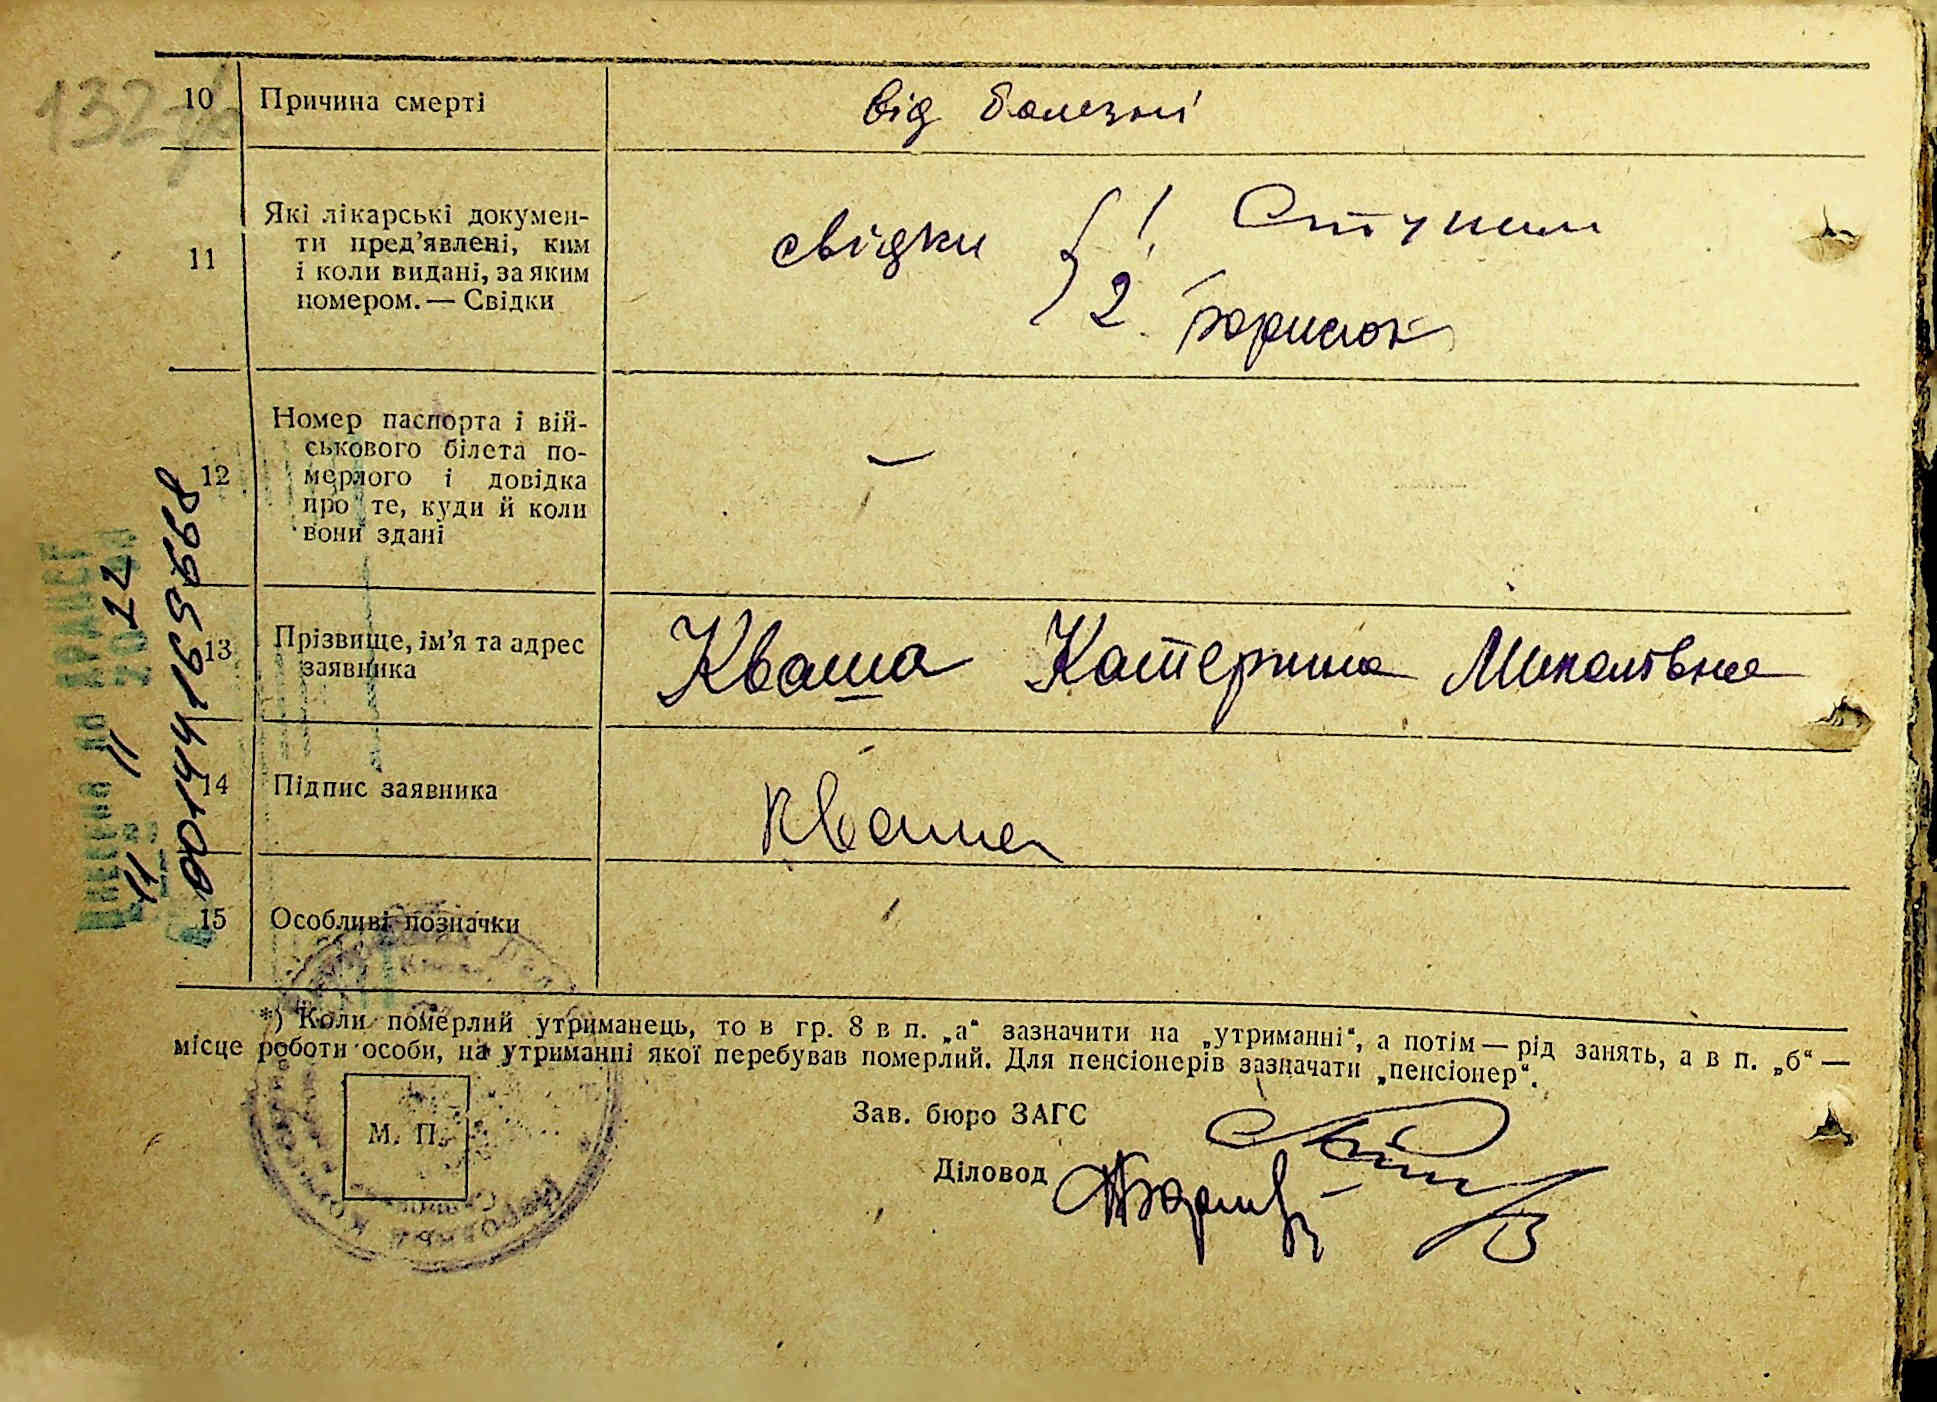 132
10 Причина смерті від болезні
11 Які лікарські докумен-
ти пред'явлені, ким
і коли видані, за яким
номером. — Свідки
свідки { 1.
2. Борисюк
12 Номер паспорта і вій-
ськового білета по-
мерлого і довідка
про те, куди й коли
вони здані
—
13 Прізвище, ім'я та адрес
заявника
Кваша Катерина Миколівна
14 Підпис заявника Кваша
15 Особливі позначки
*) Коли померлий утриманець, то в гр. 8 в п. „а“ зазначити на „утриманні“, а потім — рід занять, а в п. „б“ —
місце роботи особи, на утриманні якої перебував померлий. Для пенсіонерів зазначати „пенсіонер“.
М. П.
Зав. бюро ЗАГС
Діловод
11 11 22
00144169668